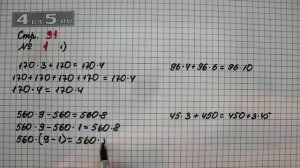 4 ДЕ 5.RU
Стр. 91
№ 1 1)
170·3+170=170·4
170+170+170+170=170·4
170·4=170·4
96·4+96·6=96·10
560·9-560=560·8
560·9-560·1=560·8
560·(9-1)=560·
45·3+450=450+3·45